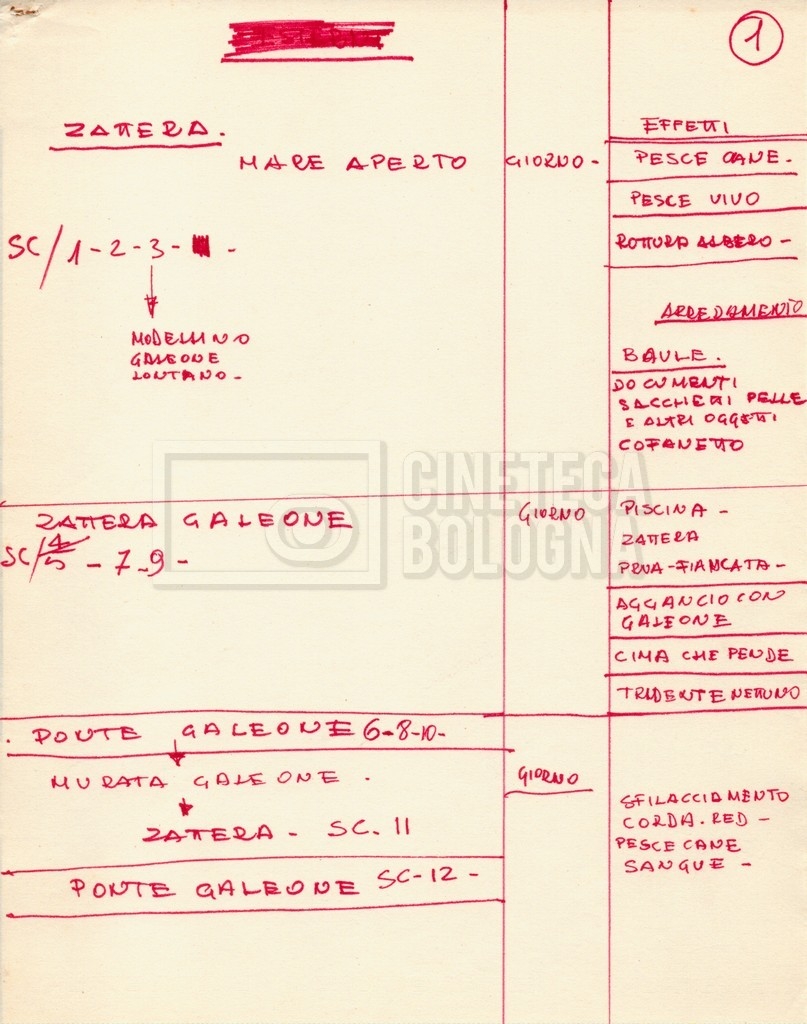 1
ZATTERA.
MARE APERTO
GIORNO -
SC/1-2-3- -
MODELLINO
GALEONE
LONTANO -
EFFETTI
PESCE CANE -
PESCE VIVO
ROTTURA ALBERO -
ARREDAMENTO
BAULE.
DOCUMENTI
SACCHETTI PELLE
E ALTRI OGGETTI
COFANETTO
CINETECA
BOLOGNA
ZATTERA GALEONE
SC/4
5 - 7-9 -
GIORNO
PISCINA -
ZATTERA
PRUA-FIANCATA -
AGGANCIO CON
GALEONE
CIMA CHE PENDE
TRIDENTE NETTUNO
. PONTE GALEONE 6-8-10-
MURATA GALEONE .
ZATTERA - SC. 11
PONTE GALEONE SC-12 -
GIORNO
SFILACCIAMENTO
CORDA. RED -
PESCE CANE
SANGUE -